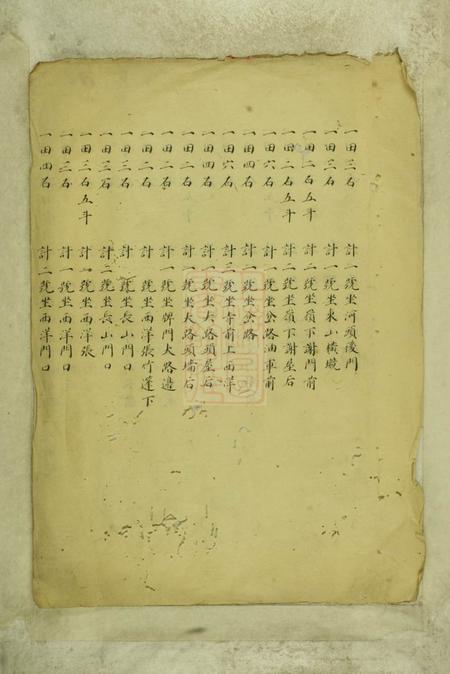 一田三石 計一號坐河頭後門
一田三石 計一號坐東山橫墘
一田二石五斗 計二號坐嶺下謝門前
一田二石五斗 計二號坐嶺下謝屋后
一田六石 計一號坐岔路油車前
一田四石 計一號坐岔路
一田六石 計三號坐寺前上西洋
一田四石 計一號坐大路頭屋后
一田二石 計一號坐大路頭墻后
一田二石 計一號坐牌門大路邊
一田二石 計一號坐西洋張竹蓬下
一田三石 計一號坐長山門口
一田三石 計二號坐長山門口
一田三石五斗 計一號坐西洋張
一田三石 計一號坐西洋門口
一田四石 計二號坐西洋門口